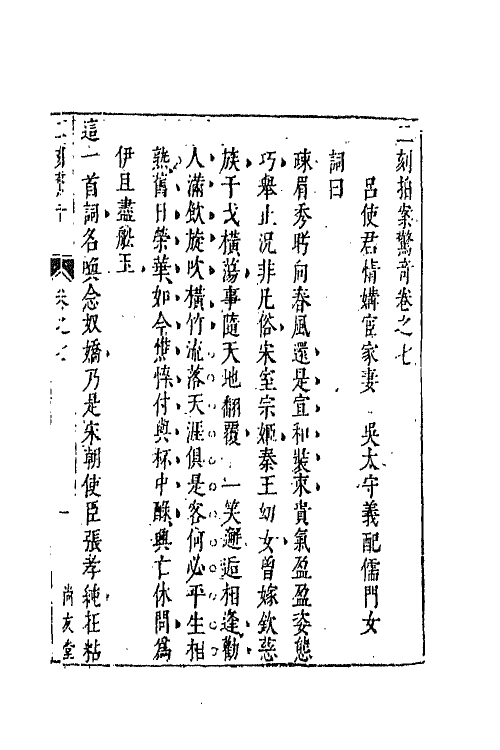 二刻拍案驚奇卷之七
呂使君情媾宦家妻　吳太守義配儒門女
詞曰
疎眉秀盻向春風還是宣和裝束貴氣盈盈姿態
巧舉止況非凡俗宋室宗姬秦王幼女曾嫁欽慈
族干戈橫蕩事隨天地翻覆　一笑邂逅相逢勸
人滿飲旋吹橫竹流落天涯俱是客何必平生相
熟舊日榮華如今憔悴付與杯中醁興亡休問為
伊且盡船玉
這一首詞名喚念奴嬌乃是宋朝使臣張孝純在粘
二刻驚奇
卷之七
一
尚友堂